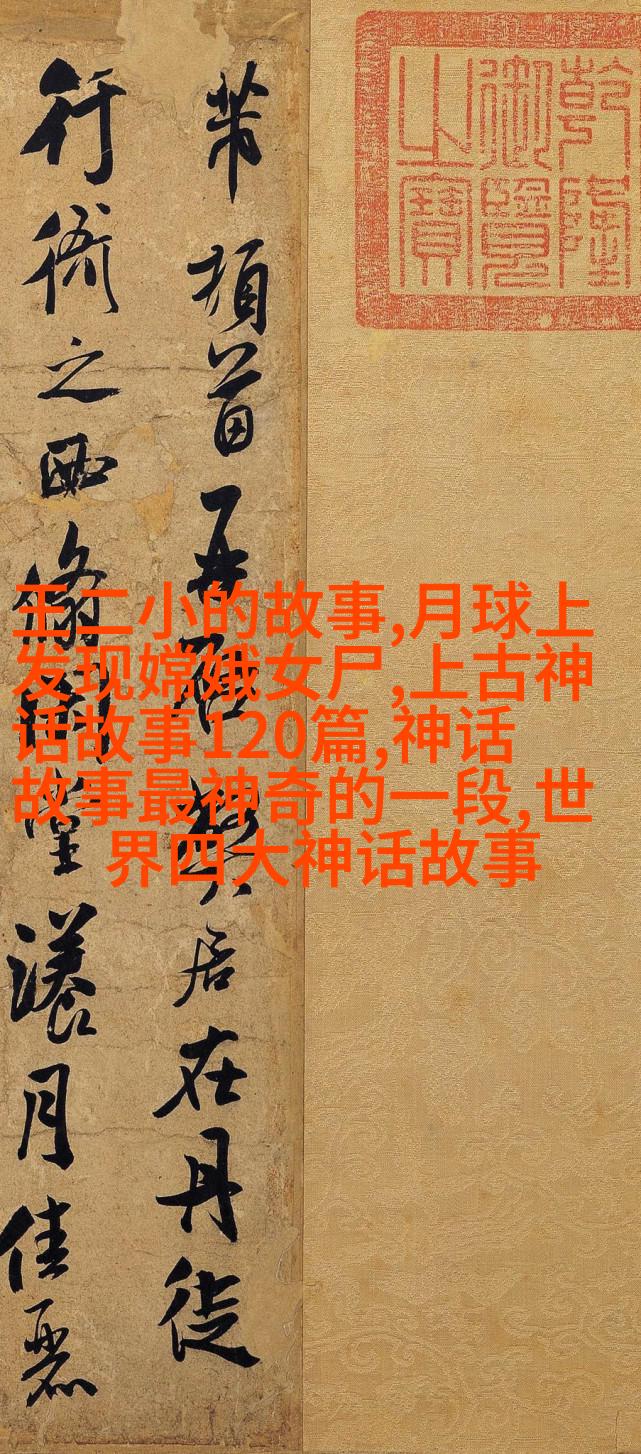 乾隆
御覽
之寶
芾頓首再啓弊居在丹徒
行衙之西翛閒堂漾月佳麗
王二小的故事,月球上
发现嫦娥女尸,上古神
话故事120篇,神话
故事最神奇的一段,世
界四大神话故事